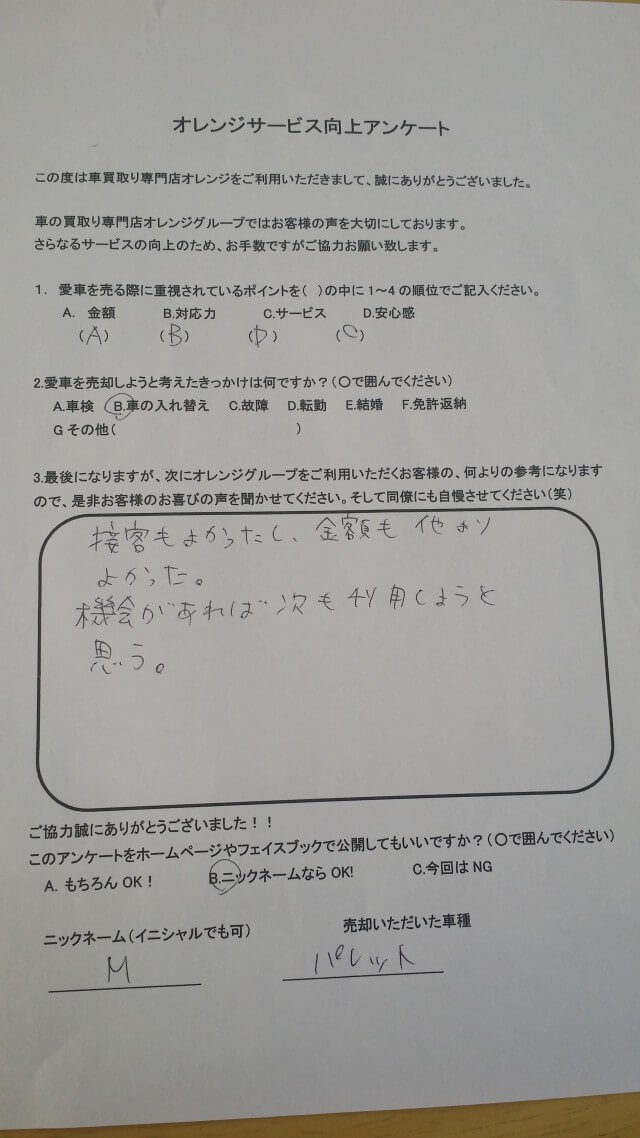 オレンジサービス向上アンケート
この度は車買取り専門店オレンジをご利用いただきまして、誠にありがとうございました。
車の買取り専門店オレンジグループではお客様の声を大切にしております。
さらなるサービスの向上のため、お手数ですがご協力お願い致します。
1. 愛車を売る際に重視されているポイントを( )の中に1〜4の順位でご記入ください。
A. 金額 B.対応力 C.サービス D.安心感
(A) (B) (D) (C)
2.愛車を売却しようと考えたきっかけは何ですか?(〇で囲んでください)
A.車検 B.車の入れ替え C.故障 D.転勤 E.結婚 F.免許返納
G その他( )
3.最後になりますが、次にオレンジグループをご利用いただくお客様の、何よりの参考になります
ので、是非お客様のお喜びの声を聞かせてください。そして同僚にも自慢させてください(笑)
接客もよかったし、金額も他より
よかった。
機会があれば次も利用しようと
思う。
ご協力誠にありがとうございました!!
このアンケートをホームページやフェイスブックで公開してもいいですか?(〇で囲んでください)
A. もちろん OK! B.ニックネームなら OK! C.今回は NG
ニックネーム(イニシャルでも可) 売却いただいた車種
M パレット